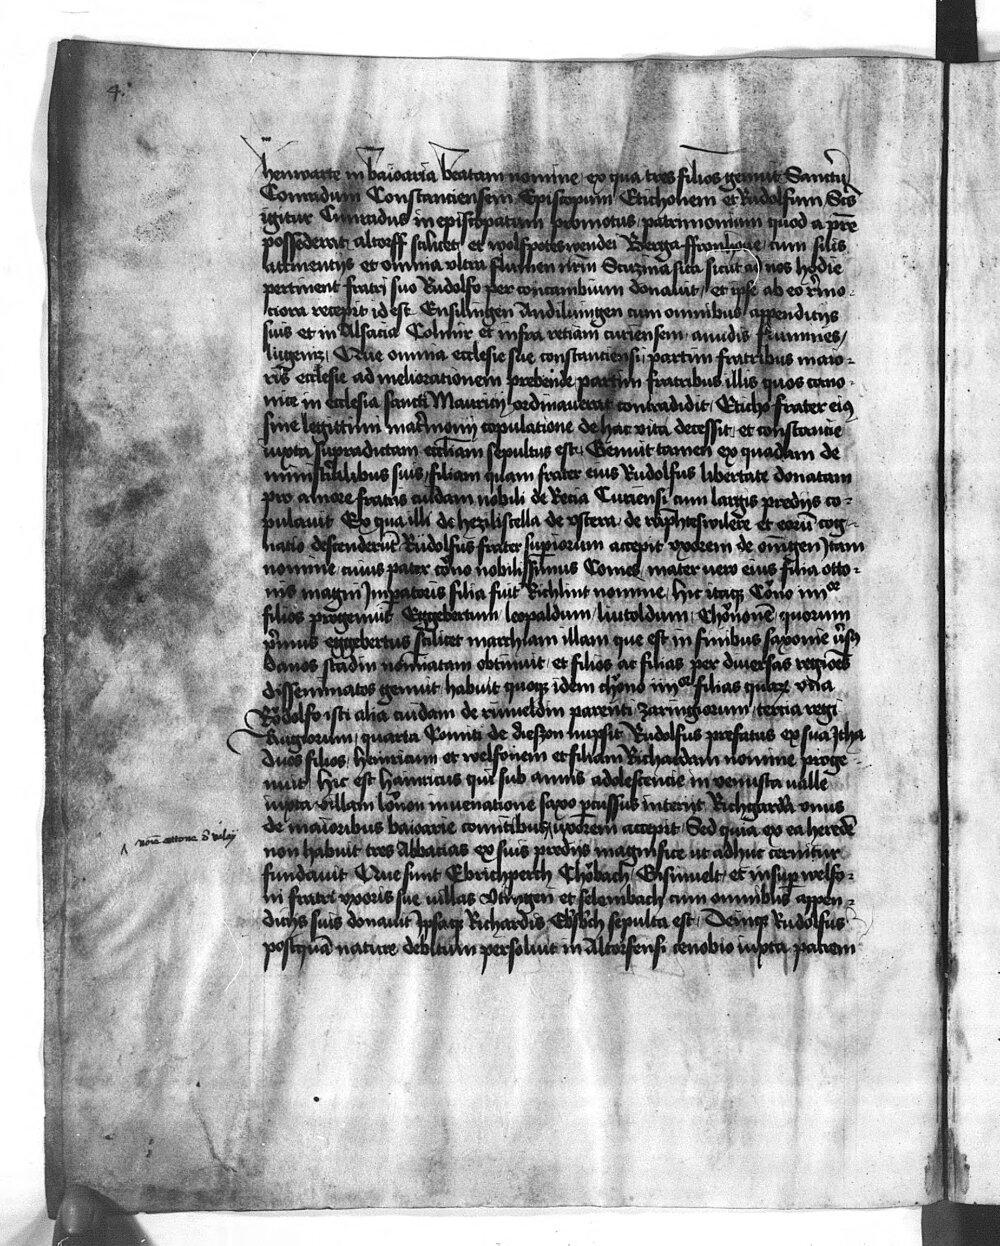 4.
henwarte in baioaria beatam nomine ex qua tres filios genuit Sanctū
Conradum Constanciensem Episcopum Etichonem et Rudolfum Scs
igitur Cunradus in episcopatum promotus patrimonium quod a pr̄e
possederat altorff scilicet et wolfpoteswendei Berga ffronhove cum silis
attinentijs et omnia ultra flumen sita sicut ad nos hodie
pertinent fratri suo Rudolfo per concambium donauit / et ipse ab eo r̄mo-
ciora recepit id est Ensilingen Andiluingen cum omnibus appenditijs
suis et in Alsacia Colmir et infra retiam curiensem amidis flumines/
lugeniz / Que omnia ecclesie sue constanciensi partim fratribus maio-
ris ecclesie ad meliorationem prebende partim fratribus illis quos cano-
nice in ecclesia sancti Mauricij ordinauerat contradidit / Eticho frater eiꝯ
sine legittim matr̄monij copulatione de hac vita decessit et constancie
iuxta supradictam eccliam sepultus est / Genuit tamen ex quadam de
ministlibus suis / filiam quam frater eius Rudolfus libertate donatam
pro amore fratris cuidam nobili de Recia Curiensi cum largis predijs co-
pulauit Ex qua illi de hezilistella de vstera de raphteswilere et eorū cog-
natio descenderūt Rudolfus frater supiorum accepit vxorem de oningen Itam
nomine cuius pater cōno nobilissimus Comes mater vero eius filia otto-
nis magni Imp̄atoris filia fuit Richlint nomine / Hic itaqꝫ Cōno iiijor
filios progenuit Eggebertum / leopaldum / liutoldum / Chōnonē quorum
p̄mus eggebertus scilicet marchiam illam que est in finibus saxonie v̄sꝯ
danos stadin nōminatam obtinuit et filios ac filias per diuersas regiōes
disseminatos genuit / habuit quoqꝫ idem chōno iiijor filias quarꝫ vna
Rōdolfo isti alia cuidam de rinueldin parenti Zaringiorum / tercia regi
Rugiorum / quarta Comiti de diezon nupsit Rudolfus prefatus ex sua Itha
duos filios / Heinricum et welfonem et filiam Richardam nomine proge-
nuit / Hic est Hainricus qui sub annis adolescencie in venusta valle
iuxta villam lōnon in uenatione saxo ꝑcussus interijt Richgarda vnus
de maioribus baioarie comitibus / vxorem accepit Sed quia ex ea heredē
non habuit tres Abbacias ex suis predijs magnifice ut adhuc cernitur
fundauit Que sunt Ebrichperch Chōbach Ensinuelt et insup̄ welfo-
ni fratri vxoris sue villas Vtingen et selembach cum omnibus appen-
dicijs suis donauit Ipsaqꝫ Richardis Ebsbch sepulta est / Deinqꝫ Rudolfus
postquā nature debitum persoluit in Altorfensi cenobio iuxta patrem